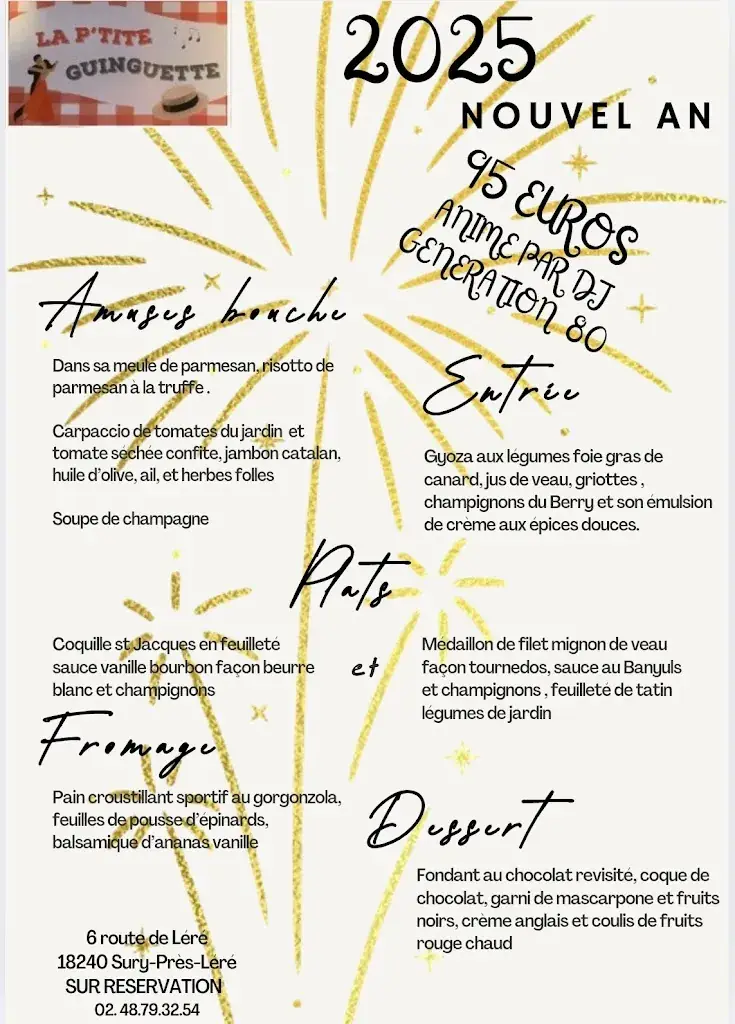 LA P'TITE
GUINGUETTE
2025
NOUVEL AN
95 EUROS
ANIME PAR DJ
GENERATION 80
Amuses bouche
Dans sa meule de parmesan, risotto de
parmesan à la truffe .
Carpaccio de tomates du jardin et
tomate séchée confite, jambon catalan,
huile d'olive, ail, et herbes folles
Soupe de champagne
Entrée
Gyoza aux légumes foie gras de
canard, jus de veau, griottes ,
champignons du Berry et son émulsion
de crème aux épices douces.
Plats
Coquille st Jacques en feuilleté
sauce vanille bourbon façon beurre
blanc et champignons
et
Médaillon de filet mignon de veau
façon tournedos, sauce au Banyuls
et champignons , feuilleté de tatin
légumes de jardin
Fromage
Pain croustillant sportif au gorgonzola,
feuilles de pousse d'épinards,
balsamique d'ananas vanille
Dessert
Fondant au chocolat revisité, coque de
chocolat, garni de mascarpone et fruits
noirs, crème anglais et coulis de fruits
rouge chaud
6 route de Léré
18240 Sury-Près-Léré
SUR RESERVATION
02. 48.79.32.54